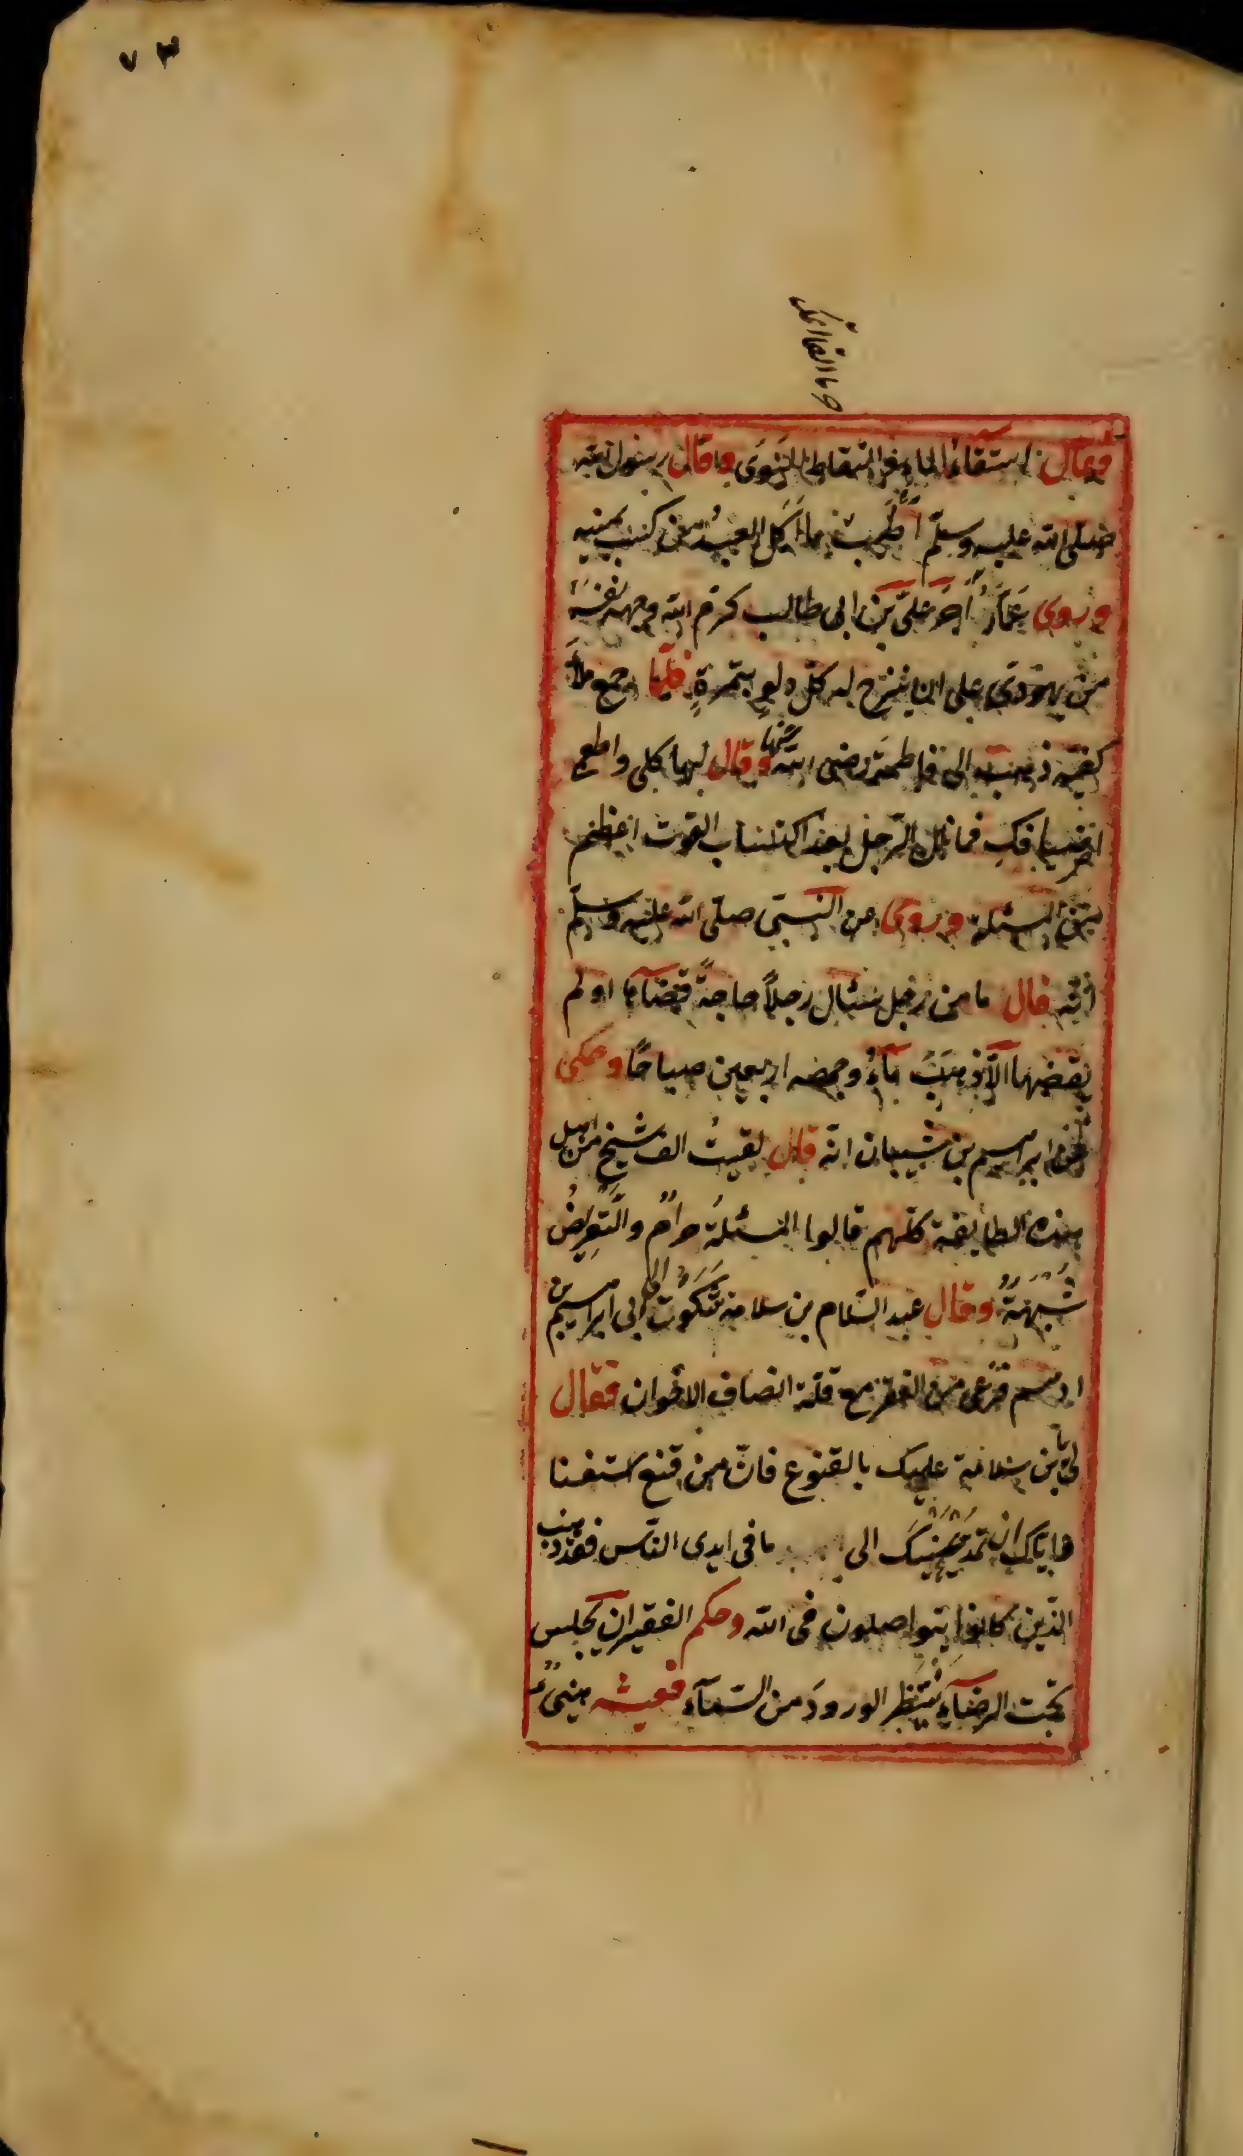 ٧٣
وقال استقاء الماء والتقاط النوى وقال رسول الله
صلى الله عليه وسلم أطيب ما أكل العبد من كسب يمينه
وروى عمّار أجر علىّ بن ابى طالب كرّم الله وجهه نفسه
من يهودىّ على ان ينزح له كلّ دلو بتمرةٍ فلمّا جمع ملأ
كفيّه ذهب به الى فاطمة رضى الله عنها وقال لها كلى واطعمى
فما نال الرّجل بعد اكتساب القوت اعظم
من المسئلة وروى عن النبىّ صلى الله عليه وسلّم
انّه قال ما من رجل سئال رجلاً حاجةً قضاها اولم
يقضها الّا ذهب ماءُ وجهه اربعين صباحًا وحكى
عن ابرهيم بن شيبان انّه قال لقيت الف شيخ من اهل
هذه الطايفة كلّهم قالوا المسئلةُ حرامٌ والتّعريضُ
شُبهةٌ وقال عبد السّلام بن سلامة شكوتُ الى ابى ابرهيم بن
ادهم من الفقر مع قلّة انصاف الاخوان فقال
لى يا بن سلامة عليك بالقنوع فانّ من قنع استغنا
وايّاك ان تمد عينيك الى ما فى ايدى النّاس فقد ذهب
الّذين كانوا يتواصلون فى الله وحكم الفقير ان يجلس
تحت الرضآء ينتظر الورودَ من السّمآء فعيشه هنىٌّ